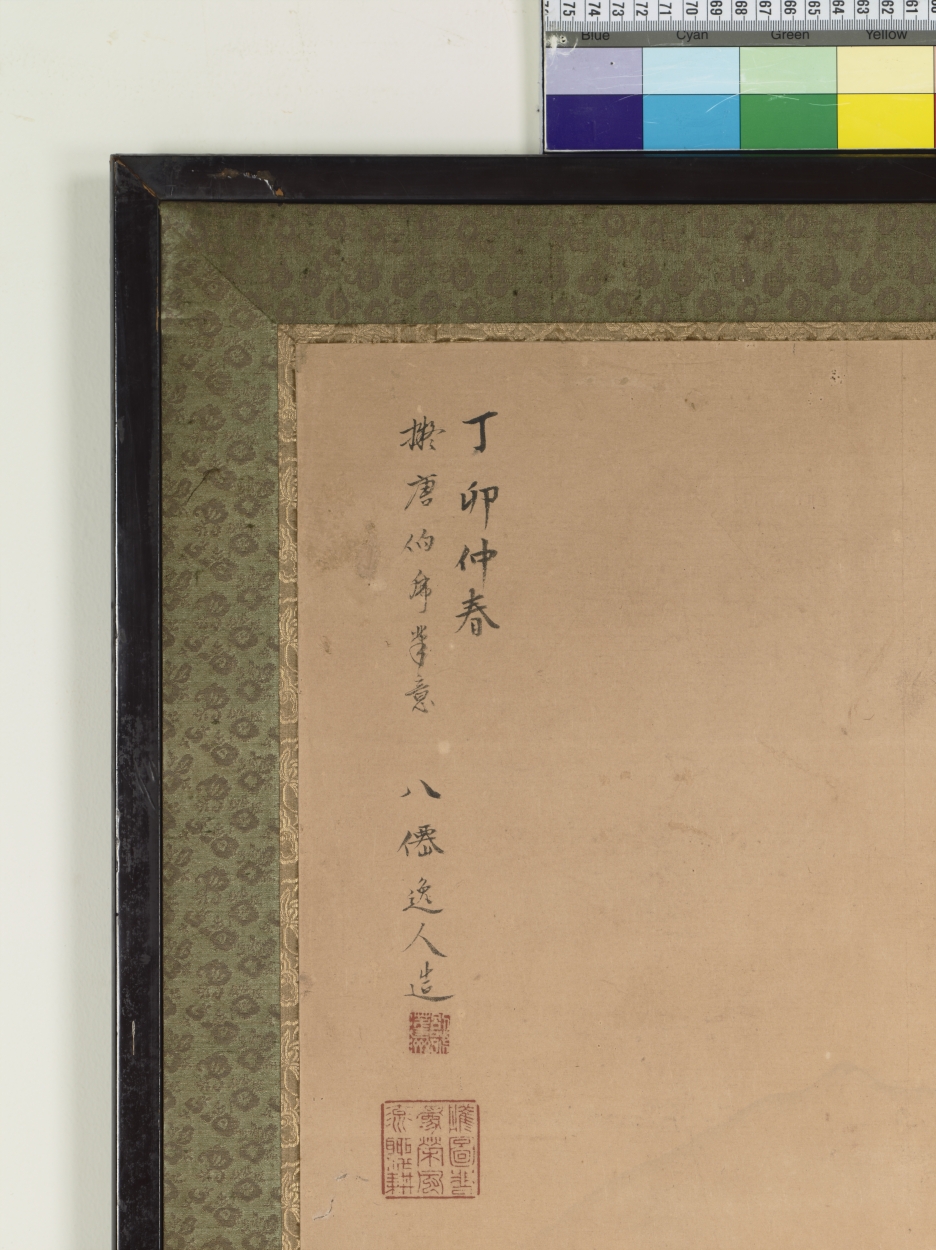 75 74 73 72 71 70 69 68 67 66 65 64 63 62 61
Blue Cyan Green Yellow
丁卯仲春
擬唐伯乕筆意 八僊逸人造